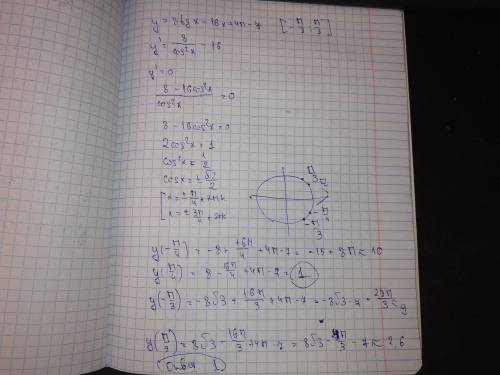 y = 8tgx - 16x + 4π - 7   [-π/3; π/3]
y' = 8/cos²x - 16
y' = 0
(8 - 16cos²x)/cos²x = 0
8 - 16cos²x = 0
2cos²x = 1
cos²x = 1/2
cosx = ± √2/2
x = ± π/4 + 2πk
x = ± 3π/4 + 2πk
π/3
π/4
-π/4
-π/3
y(-π/4) = -8 + 16π/4 + 4π - 7 = -15 + 8π ≈ 10
y(π/4) = 8 - 16π/4 + 4π - 7 = 1
y(-π/3) = -8√3 + 16π/3 + 4π - 7 = -8√3 - 7 + 28π/3 ≈ 9
y(π/3) = 8√3 - 16π/3 + 4π - 7 = 8√3 - 4π/3 - 7 ≈ 2,6
Ответ 1